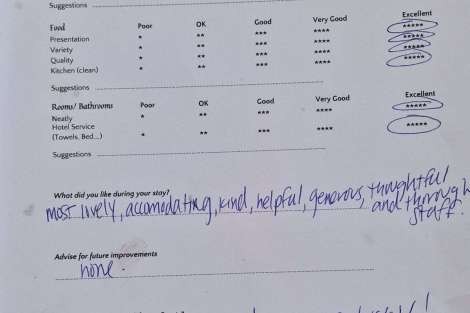 Suggestions
Food Poor OK Good Very Good Excellent
Presentation * ** *** **** *****
Variety * ** *** **** *****
Quality * ** *** **** *****
Kitchen (clean) * ** *** **** *****
Suggestions
Rooms/ Bathrooms Poor OK Good Very Good Excellent
Neatly * ** *** **** *****
Hotel Service
(Towels, Bed...) * ** *** **** *****
Suggestions
What did you like during your stay?
most lively, accomodating, kind, helpful, generous, thoughtful
and thorough
staff.
Advise for future improvements
none.